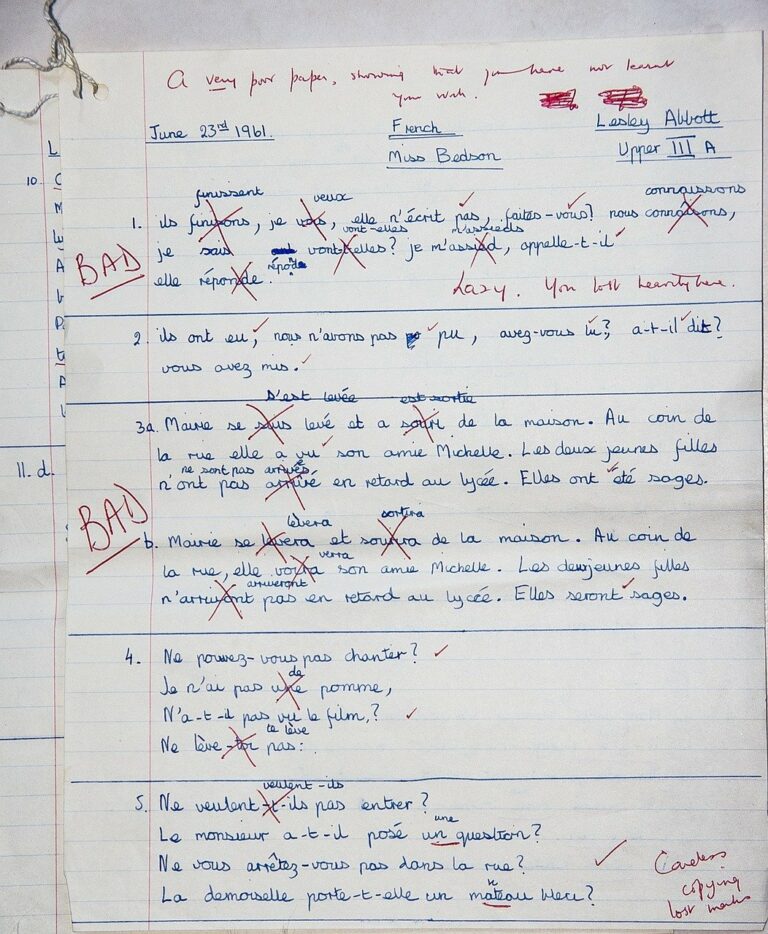 A very poor paper, showing that you have not learnt
your work.
June 23rd 1961. French Lesley Abbott
Miss Bedson Upper III A
finissent veux connaissons
1. ils finisons, je vais, elle n'écrit pas, faites-vous? nous connâsons,
vont-elles m'assieds
je sais vont-elles? je m'assied, appelle-t-il
BAD
répond
elle réponde.
Lazy. You lost heavily here.
2. ils ont eu, nous n'avons pas pu, avez-vous lu?, a-t-il dit?
vous avez mis.
s'est levée est sortie
3a. Mairie se suis levé et a souri de la maison. Au coin de
la rue elle a vu son amie Michelle. Les deux jeunes filles
ne sont pas arrivés
n'ont pas arrivé en retard au lycée. Elles ont été sages.
BAD
lèvera sortira
b. Mairie se levera et sourira de la maison. Au coin de
verra
la rue, elle voira son amie Michelle. Les deux jeunes filles
arriveront
n'arrivont pas en retard au lycée. Elles seront sages.
4. Ne pouvez-vous pas chanter?
de
Je n'ai pas une pomme,
N'a-t-il pas vu le film,?
te lève
Ne lève-toi pas:
veulent-ils
5. Ne veulent-t-ils pas entrer?
une
Le monsieur a-t-il posé un question?
Ne vous arrêtez-vous pas dans la rue?
La demoiselle porte-t-elle un mateau bleu?
Careless
copying
lost marks
10.
L
C
M
W
A
V
P
t
A
V
11. d.